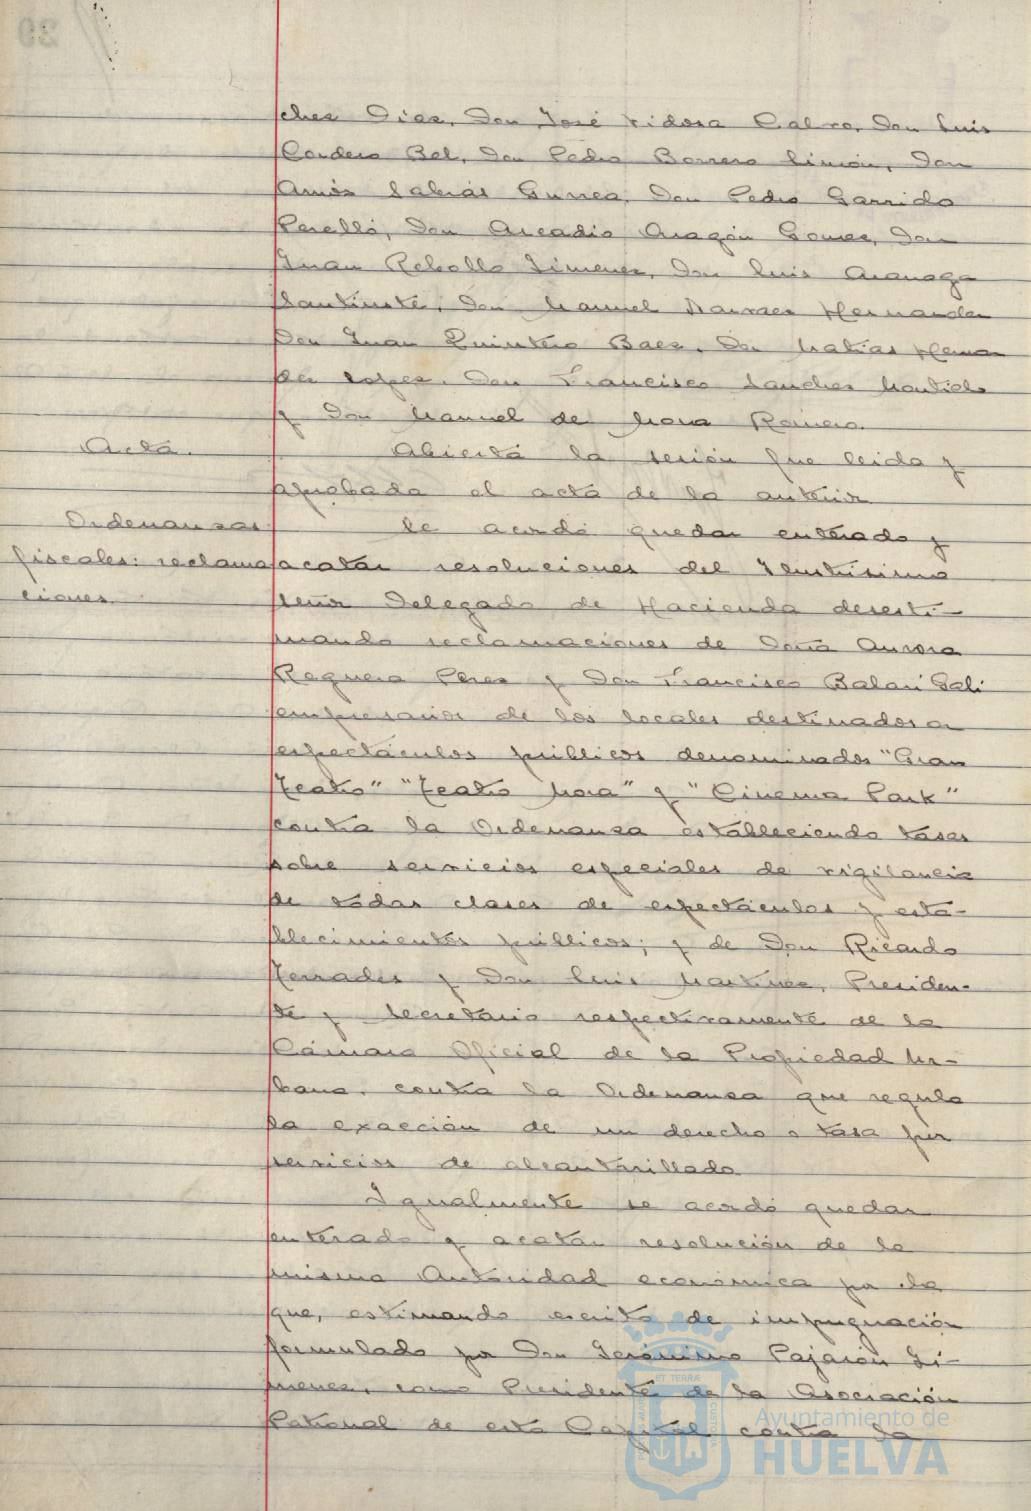 chez Díaz, Don José Vidosa Calvo, Don Luis
Cordero Bel, Don Pedro Borrero Limón, Don
Amós Sabrás Gurrea, Don Pedro Garrido
Perelló, Don Arcadio Aragón Gomez, Don
Juan Rebollo Jimenez, Don Luis
Don Manuel Narvaez Hernandez
Don Juan Quintero Baez, Don Matías Hernan
dez Lopez, Don Francisco Sanchez Montiel
y Don Manuel de Mora Romero.
Acta. Abierta la sesión fue leida y
aprobada el acta de la anterior
Ordenanzas Se acordó quedar enterado y
fiscales: reclama acatar resoluciones del Ilustrísimo
ciones Señor Delegado de Hacienda desesti-
mando reclamaciones de Doña Aurora
Reguera Perez y Don Francisco Balari Gali
empresarios de los locales destinados a
espectáculos públicos denominados "Gran
Teatro" "Teatro Mora" y "Cinema Park"
contra la Ordenanza estableciendo tasas
sobre servicios especiales de vigilancia
de todas clases de espectáculos y esta-
blecimientos públicos; y de Don Ricardo
Terrades y Don Luis Martinez, Presiden-
te y Secretario respectivamente de la
Cámara Oficial de la Propiedad Ur-
bana, contra la Ordenanza que regula
la exacción de un derecho o tasa por
servicios de alcantarillado
Igualmente se acordó quedar
enterado y acatar resolución de la
misma Autoridad económica por la
que, estimando escrito de impugnación
formulado por Don Jerónimo Pajarón Ji-
menez, como Presidente de la Asociación
Patronal de esta Capital contra la
Ayuntamiento de
HUELVA